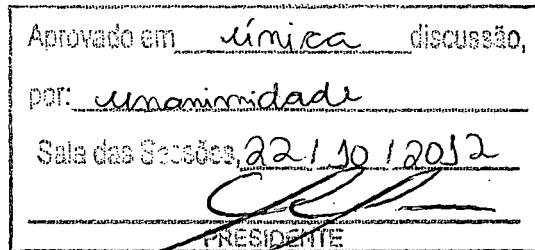 Aprovado em única discussão,
por: unanimidade
Sala das Sessões, 22/10/2012
PRESIDENTE